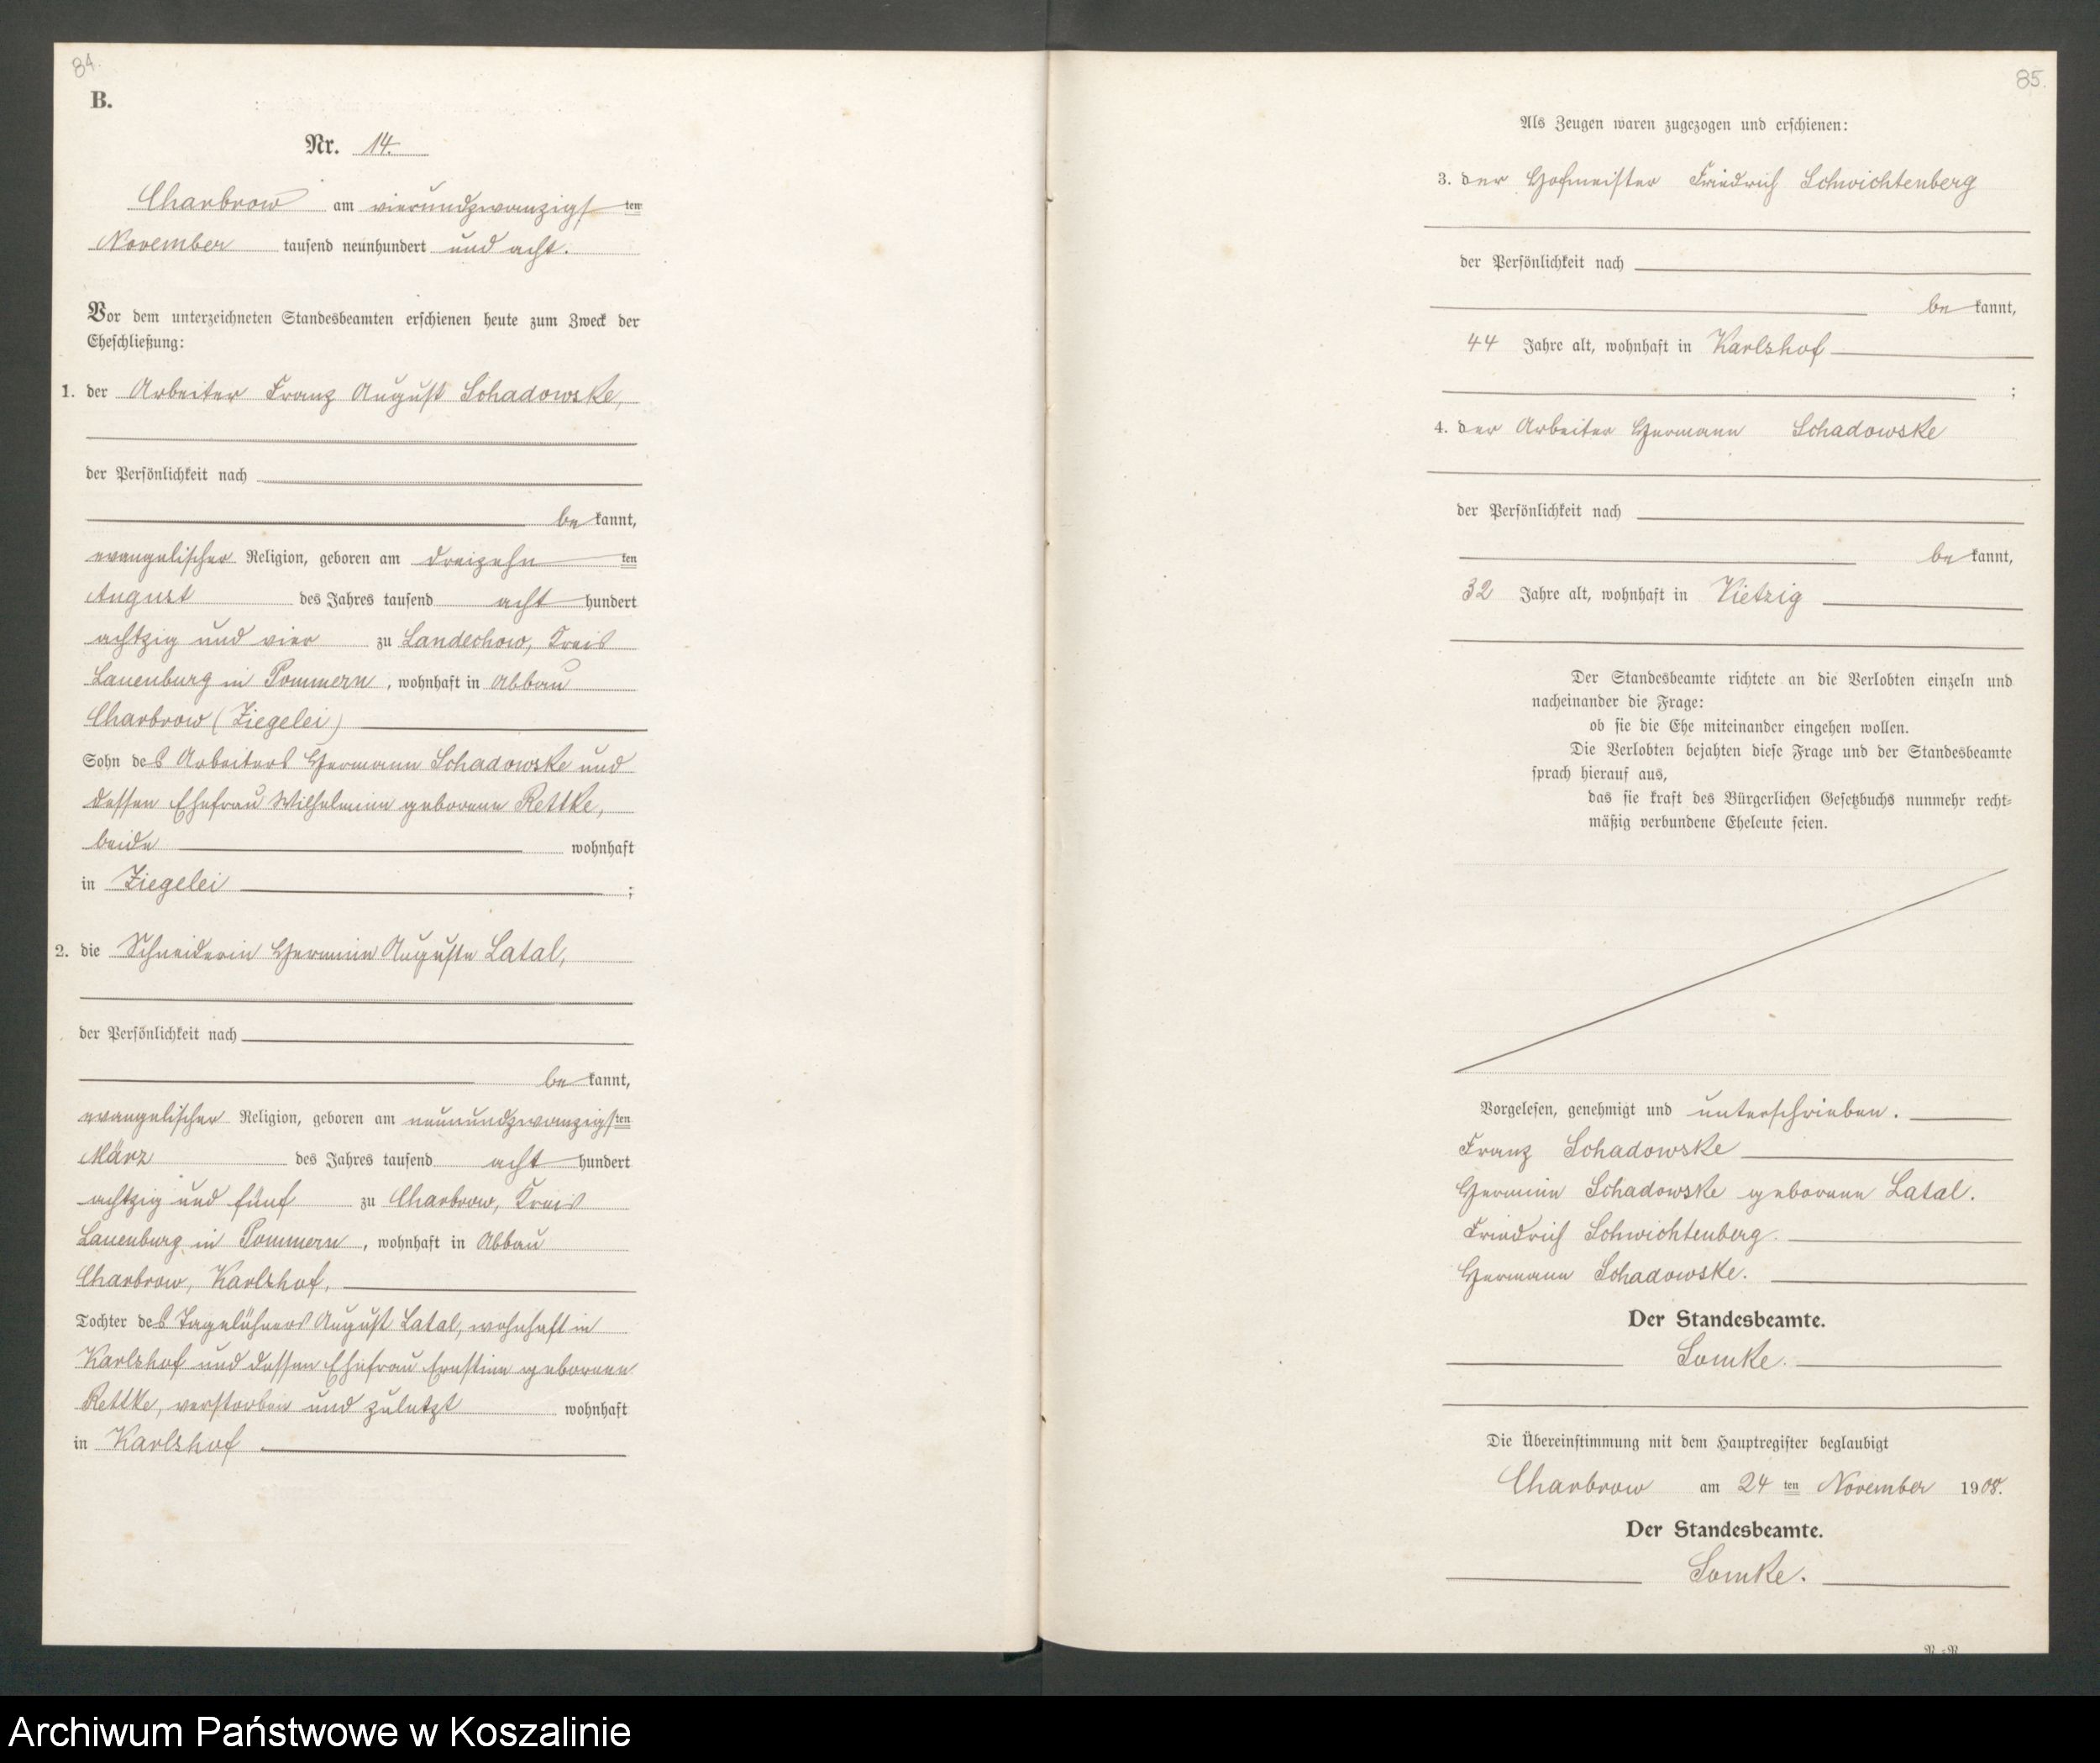 84.
B.
Nr. 14.
Charbrow am vierundzwanzigsten
November tausend neunhundert und acht.
Vor dem unterzeichneten Standesbeamten erschienen heute zum Zweck der
Eheschließung:
1. der Arbeiter Franz August Schadowske,
der Persönlichkeit nach
be kannt,
evangelischer Religion, geboren am dreizehn ten
August des Jahres tausend acht hundert
achtzig und vier zu Landechow, Kreis
Lauenburg in Pommern, wohnhaft in Abbau
Charbrow (Ziegelei)
Sohn des Arbeiters Hermann Schadowske und
dessen Ehefrau Wilhelmine geborene Rettke,
beide wohnhaft
in Ziegelei ;
2. die Schneiderin Hermine Auguste Latal,
der Persönlichkeit nach
be kannt,
evangelischer Religion, geboren am neunundzwanzigsten
März des Jahres tausend acht hundert
achtzig und fünf zu Charbrow, Kreis
Lauenburg in Pommern, wohnhaft in Abbau
Charbrow, Karlshof,
Tochter des Tagelöhners August Latal, wohnhaft in
Karlshof und dessen Ehefrau Ernstine geborene
Rettke, verstorben und zuletzt wohnhaft
in Karlshof.
85.
Als Zeugen waren zugezogen und erschienen:
3. der Hofmeister Friedrich Schwichtenberg
der Persönlichkeit nach
be kannt,
44 Jahre alt, wohnhaft in Karlshof
;
4. der Arbeiter Hermann Schadowske
der Persönlichkeit nach
be kannt,
32 Jahre alt, wohnhaft in Vietzig
Der Standesbeamte richtete an die Verlobten einzeln und
nacheinander die Frage:
ob sie die Ehe miteinander eingehen wollen.
Die Verlobten bejahten diese Frage und der Standesbeamte
sprach hierauf aus,
das sie kraft des Bürgerlichen Gesetzbuchs nunmehr recht-
mäßig verbundene Eheleute seien.
Vorgelesen, genehmigt und unterschrieben.
Franz Schadowske
Hermine Schadowske geborene Latal.
Friedrich Schwichtenberg.
Hermann Schadowske.
Der Standesbeamte.
Lomke.
Die Übereinstimmung mit dem Hauptregister beglaubigt
Charbrow am 24 ten November 1908.
Der Standesbeamte.
Lomke.
Archiwum Państwowe w Koszalinie